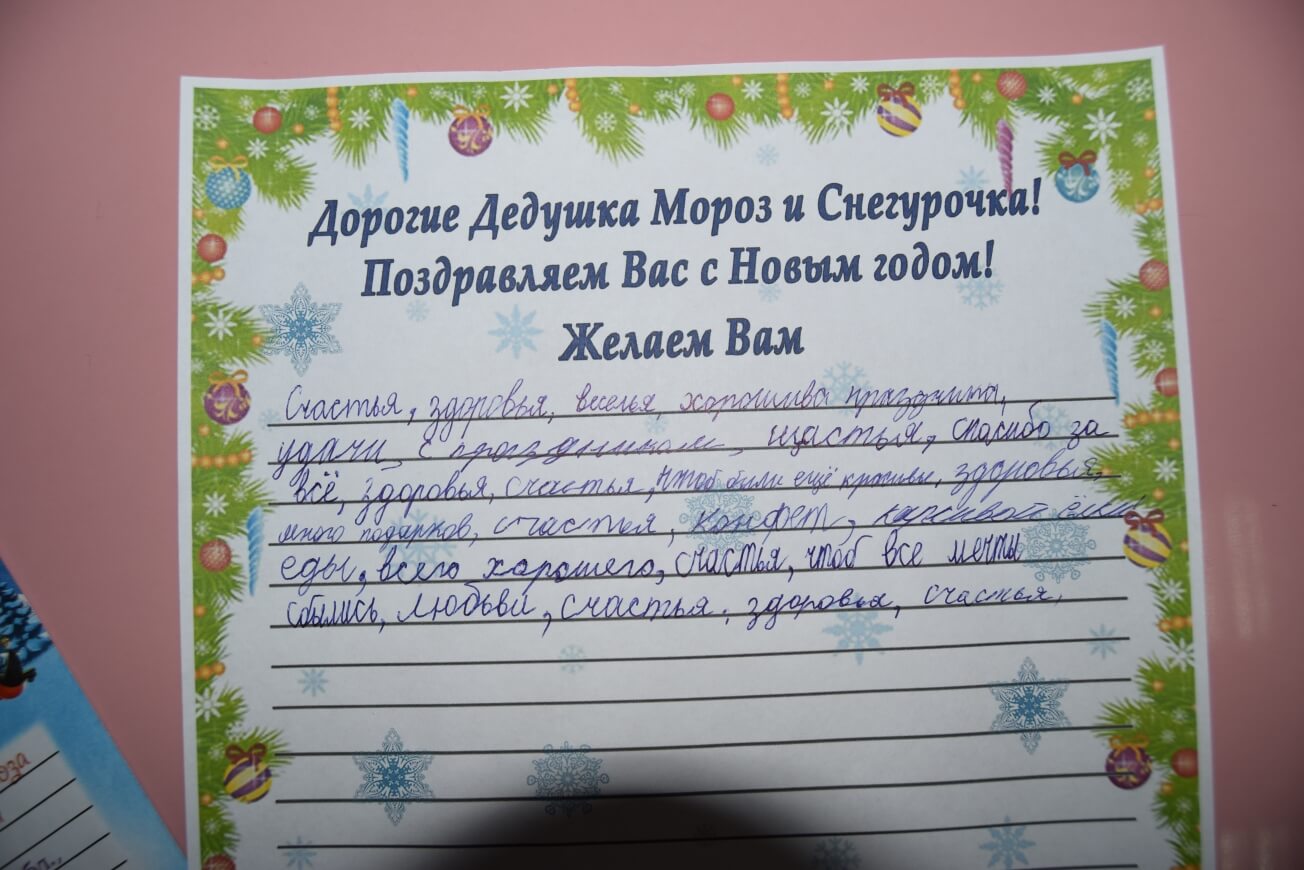 Дорогие Дедушка Мороз и Снегурочка!
Поздравляем Вас с Новым годом!
Желаем Вам
Счастья, здоровья, веселья, хорошива праздника,
удачи, с праздником, щастья, спасибо за
всё, здоровья, счастья, чтоб были ещё красивы, здоровья,
много подарков, счастья, конфет, красивой ёлки
еды, всего хорошего, счастья, чтоб все мечты
сбылись, любьви, счастья, здоровья, счастья,
оза